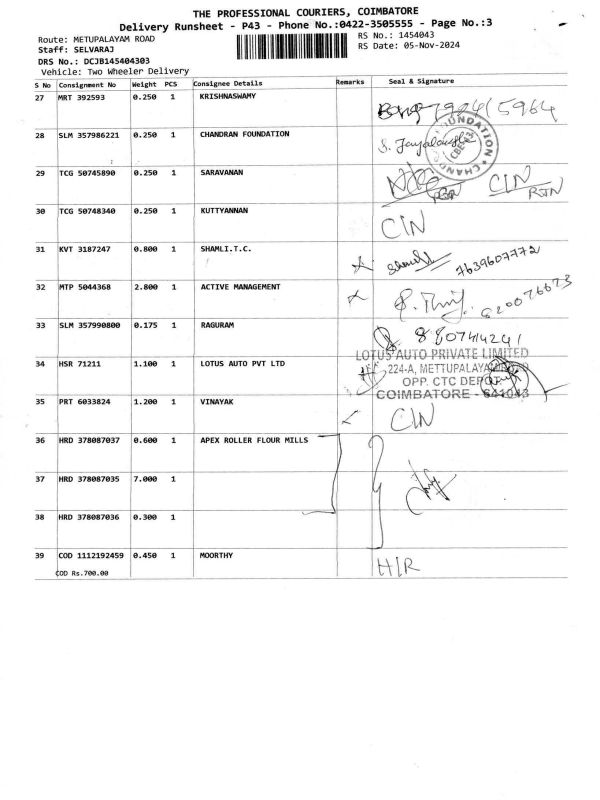 THE PROFESSIONAL COURIERS, COIMBATORE
Delivery Runsheet - P43 - Phone No.:0422-3505555 - Page No.:3
Route: METUPALAYAM ROAD
RS No.: 1454043
Staff: SELVARAJ
RS Date: 05-Nov-2024
DRS No.: DCJB145404303
Vehicle: Two Wheeler Delivery
S No Consignment No Weight PCS Consignee Details Remarks Seal & Signature
27 MRT 392593 0.250 1 KRISHNASWAMY
28 SLM 357986221 0.250 1 CHANDRAN FOUNDATION
29 TCG 50745890 0.250 1 SARAVANAN CIN
30 TCG 50748340 0.250 1 KUTTYANNAN CIN
31 KVT 3187247 0.800 1 SHAMLI.T.C. 7639607772
32 MTP 5044368 2.800 1 ACTIVE MANAGEMENT
33 SLM 357990800 0.175 1 RAGURAM
LOTUS AUTO PRIVATE LIMITED
34 HSR 71211 1.100 1 LOTUS AUTO PVT LTD 224-A, METTUPALAYAM
OPP. CTC DEPOT
COIMBATORE - 641043
35 PRT 6033824 1.200 1 VINAYAK CIN
36 HRD 378087037 0.600 1 APEX ROLLER FLOUR MILLS
37 HRD 378087035 7.000 1
38 HRD 378087036 0.300 1
39 COD 1112192459 0.450 1 MOORTHY H/R
COD Rs.700.00